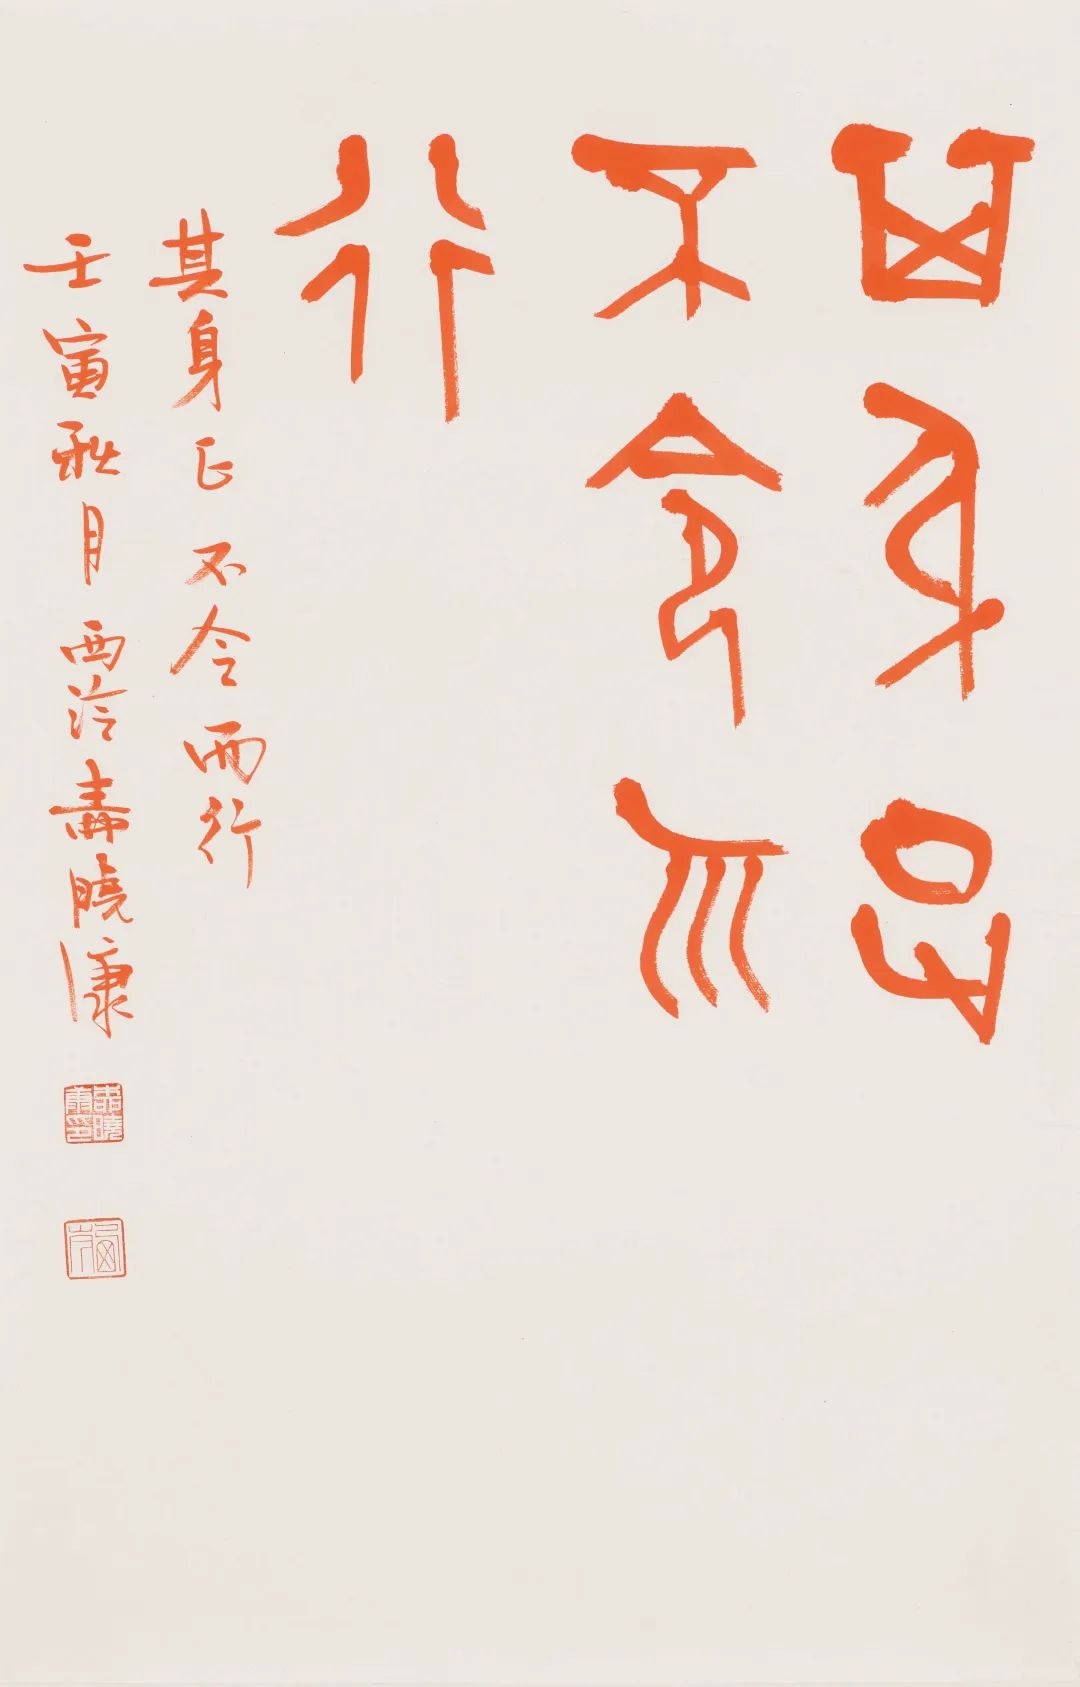 其身正
不令而
行
其身正不令而行
壬寅秋月西泠寿晓康